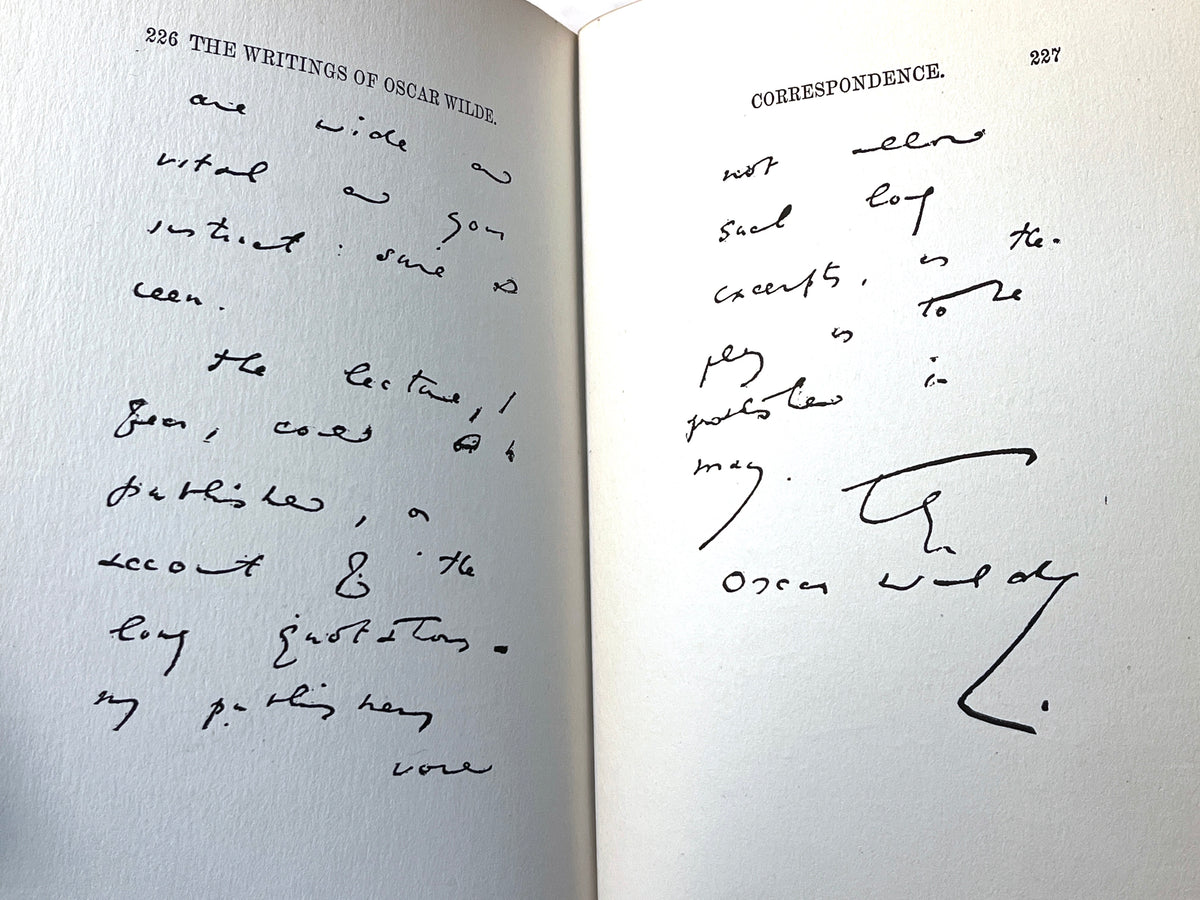 226 THE WRITINGS OF OSCAR WILDE.
are wide as
vital as you
instruct : sure
seen.
The lecture, I
fear, could be
published, on
account of the
long quotations.
my publishers
would
CORRESPONDENCE. 227
not allow
such long
excerpts, as the
play is to be
published in
may.
Oscar Wilde